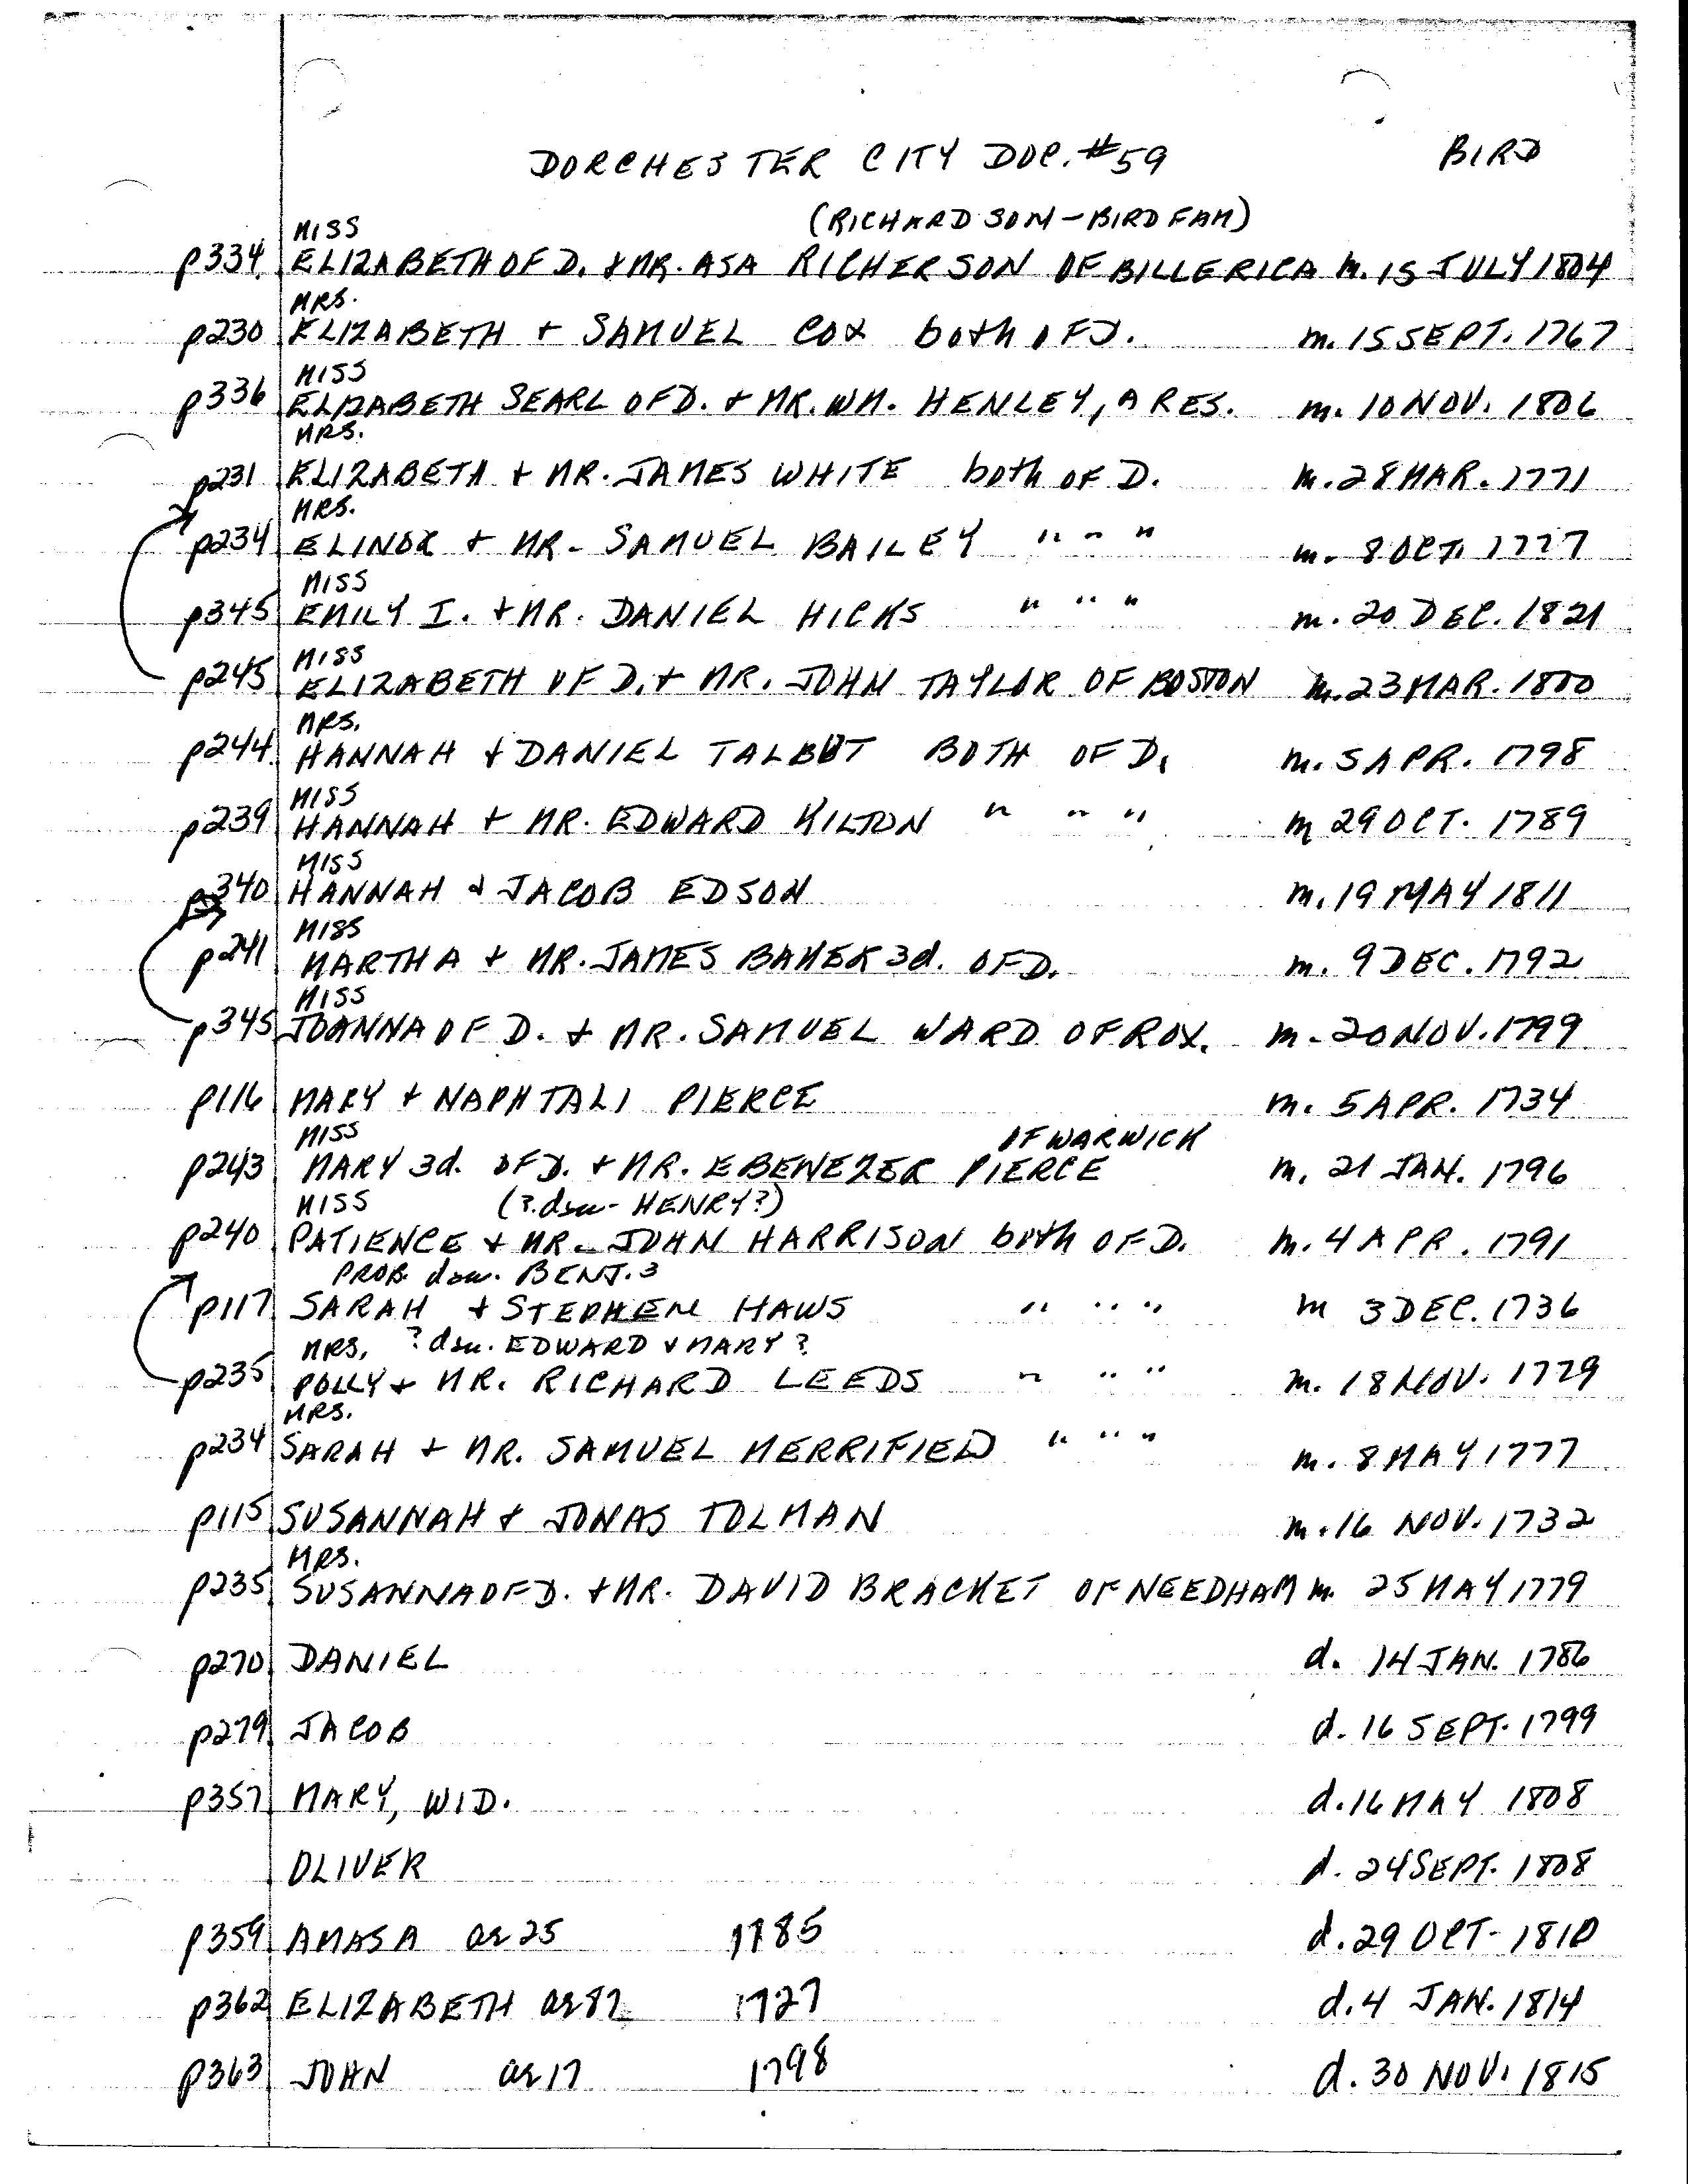 DORCHESTER CITY DOC. #59 BIRD
(RICHARDSON - BIRD FAM)
MISS
p334 ELIZABETH OF D. & MR. ASA RICHERSON OF BILLERICA m. 15 JULY 1804
MRS.
p230 ELIZABETH + SAMUEL COX both OF D. m. 15 SEPT. 1767
MISS
p336 ELIZABETH SEARL OF D. + MR. WM. HENLEY, A RES. m. 10 NOV. 1806
MRS.
p231 ELIZABETH + MR. JAMES WHITE both OF D. m. 28 MAR. 1771
MRS.
p234 ELINOR + MR. SAMUEL BAILEY " " " m. 8 OCT. 1777
MISS
p345 EMILY I. + MR. DANIEL HICKS " " " m. 20 DEC. 1821
MISS
p245 ELIZABETH OF D. + MR. JOHN TAYLOR OF BOSTON m. 23 MAR. 1800
MRS.
p244 HANNAH & DANIEL TALBUT BOTH OF D. m. 5 APR. 1798
MISS
p239 HANNAH + MR. EDWARD KILTON " " " m 29 OCT. 1789
MISS
p340 HANNAH & JACOB EDSON m. 19 MAY 1811
MISS
p241 MARTHA + MR. JAMES BAKER 3d. OF D. m. 9 DEC. 1792
MISS
p345 JOANNA OF D. & MR. SAMUEL WARD OF ROX. m. 20 NOV. 1799
p116 MARY + NAPHTALI PIERCE m. 5 APR. 1734
MISS OF WARWICK
p243 MARY 3d. OF D. + MR. EBENEZER PIERCE m. 21 JAN. 1796
MISS (? dau - HENRY?)
p240 PATIENCE + MR. JOHN HARRISON both OF D. m. 4 APR. 1791
PROB dau. BENJ. 3
p117 SARAH + STEPHEN HAWS " " " m 3 DEC. 1736
MRS. ? dau. EDWARD & MARY ?
p235 POLLY + MR. RICHARD LEEDS " " " m. 18 NOV. 1779
MRS.
p234 SARAH + MR. SAMUEL MERRIFIELD " " " m. 8 MAY 1777
p115 SUSANNAH & JONAS TOLMAN m. 16 NOV. 1732
MRS.
p235 SUSANNA OF D. + MR. DAVID BRACKET OF NEEDHAM m. 25 MAY 1779
p270 DANIEL d. 14 JAN. 1786
p279 JACOB d. 16 SEPT. 1799
p357 MARY, WID. d. 16 MAY 1808
OLIVER d. 24 SEPT. 1808
p359 AMASA ae 25 1785 d. 29 OCT. 1810
p362 ELIZABETH ae 87 1727 d. 4 JAN. 1814
p363 JOHN ae 17 1798 d. 30 NOV. 1815